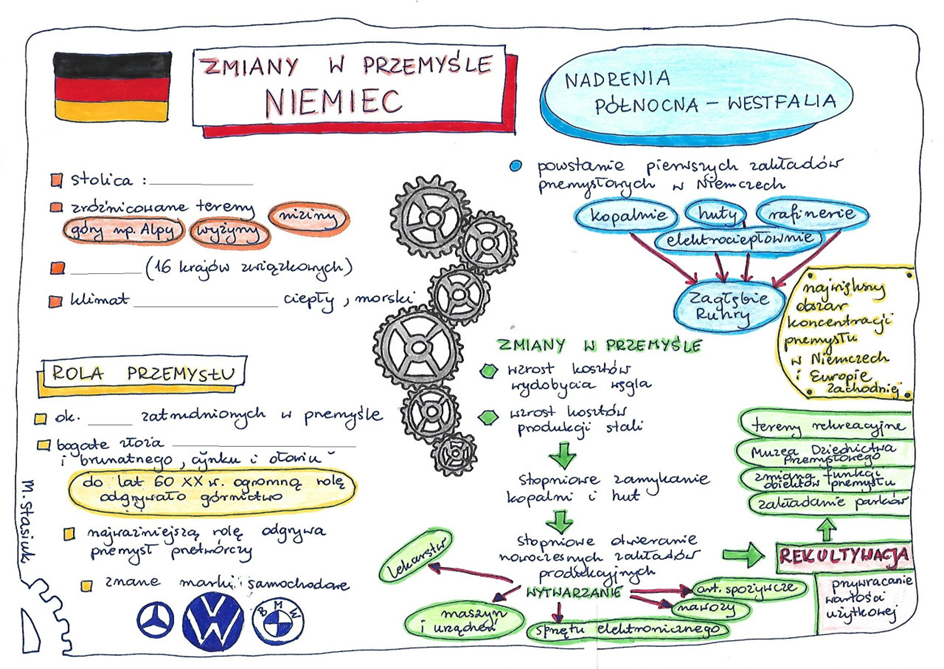 ZMIANY W PRZEMYŚLE
NIEMIEC
NADRENIA
PÓŁNOCNA - WESTFALIA
stolica :
zróżnicowane tereny
góry np. Alpy
wyżyny
niziny
(16 krajów związkowych)
klimat ciepły, morski
ROLA PRZEMYSŁU
ok. zatrudnionych w przemyśle
bogate złoża
i brunatnego, cynku i ołowiu
do lat 60 XX w. ogromną rolę
odgrywało górnictwo
najważniejszą rolę odgrywa
przemysł przetwórczy
znane marki samochodowe
W
BMW
m. stasiuk
powstanie pierwszych zakładów
przemysłowych w Niemczech
kopalnie
huty
rafinerie
elektrociepłownie
Zagłębie
Ruhry
największy
obszar
koncentracji
przemysłu
w Niemczech
i Europie
zachodniej
ZMIANY W PRZEMYŚLE
wzrost kosztów
wydobycia węgla
wzrost kosztów
produkcji stali
Stopniowe zamykanie
kopalni i hut
Stopniowe otwieranie
nowoczesnych zakładów
produkcyjnych
WYTWARZANIE
lekarstw
maszyn
i urządzeń
sprzętu elektronicznego
nawozy
art. spożywcze
REKULTYWACJA
przywracanie
wartości
użytkowej
tereny rekreacyjne
Muzea Dziedzictwa
Przemysłowego
zmiana funkcji
obiektów przemysłu
zakładanie parków